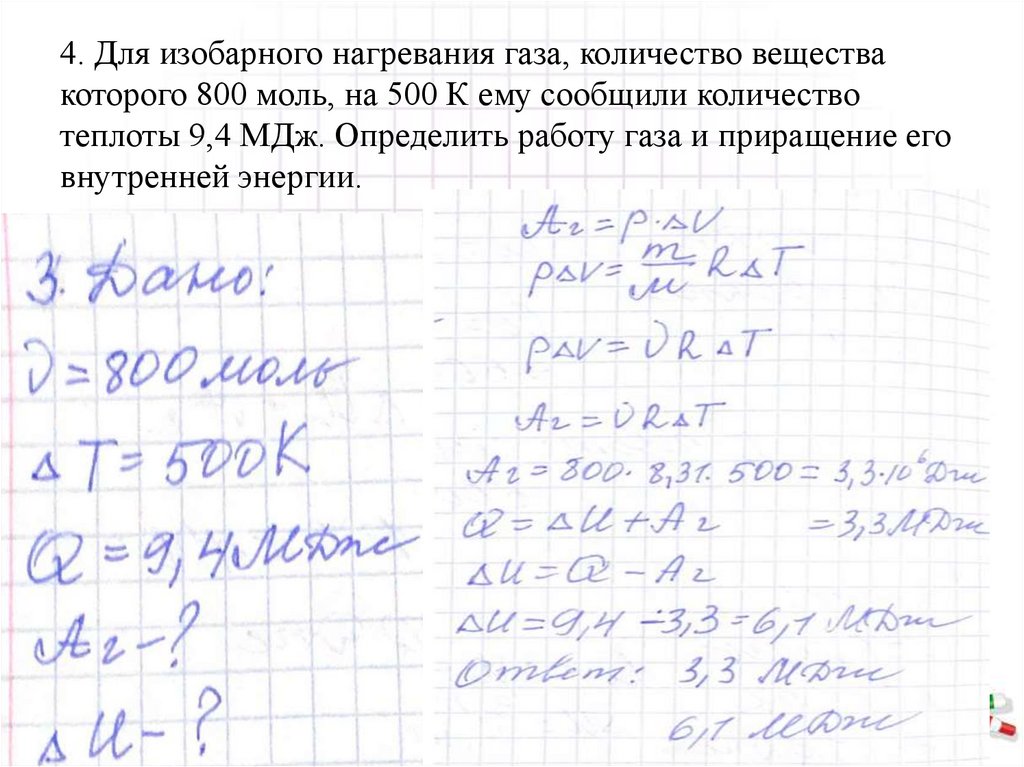 4. Для изобарного нагревания газа, количество вещества
которого 800 моль, на 500 К ему сообщили количество
теплоты 9,4 МДж. Определить работу газа и приращение его
внутренней энергии.
3. Дано:
ν = 800 моль
ΔT = 500K
Q = 9,4 МДж
Aг - ?
ΔU - ?
Aг = p·ΔV
pΔV = m/M RΔT
pΔV = νRΔT
Aг = νRΔT
Aг = 800· 8,31· 500 = 3,3·10⁶ Дж
Q = ΔU + Aг = 3,3 МДж
ΔU = Q - Aг
ΔU = 9,4 - 3,3 = 6,1 МДж
Ответ: 3,3 МДж
6,1 МДж